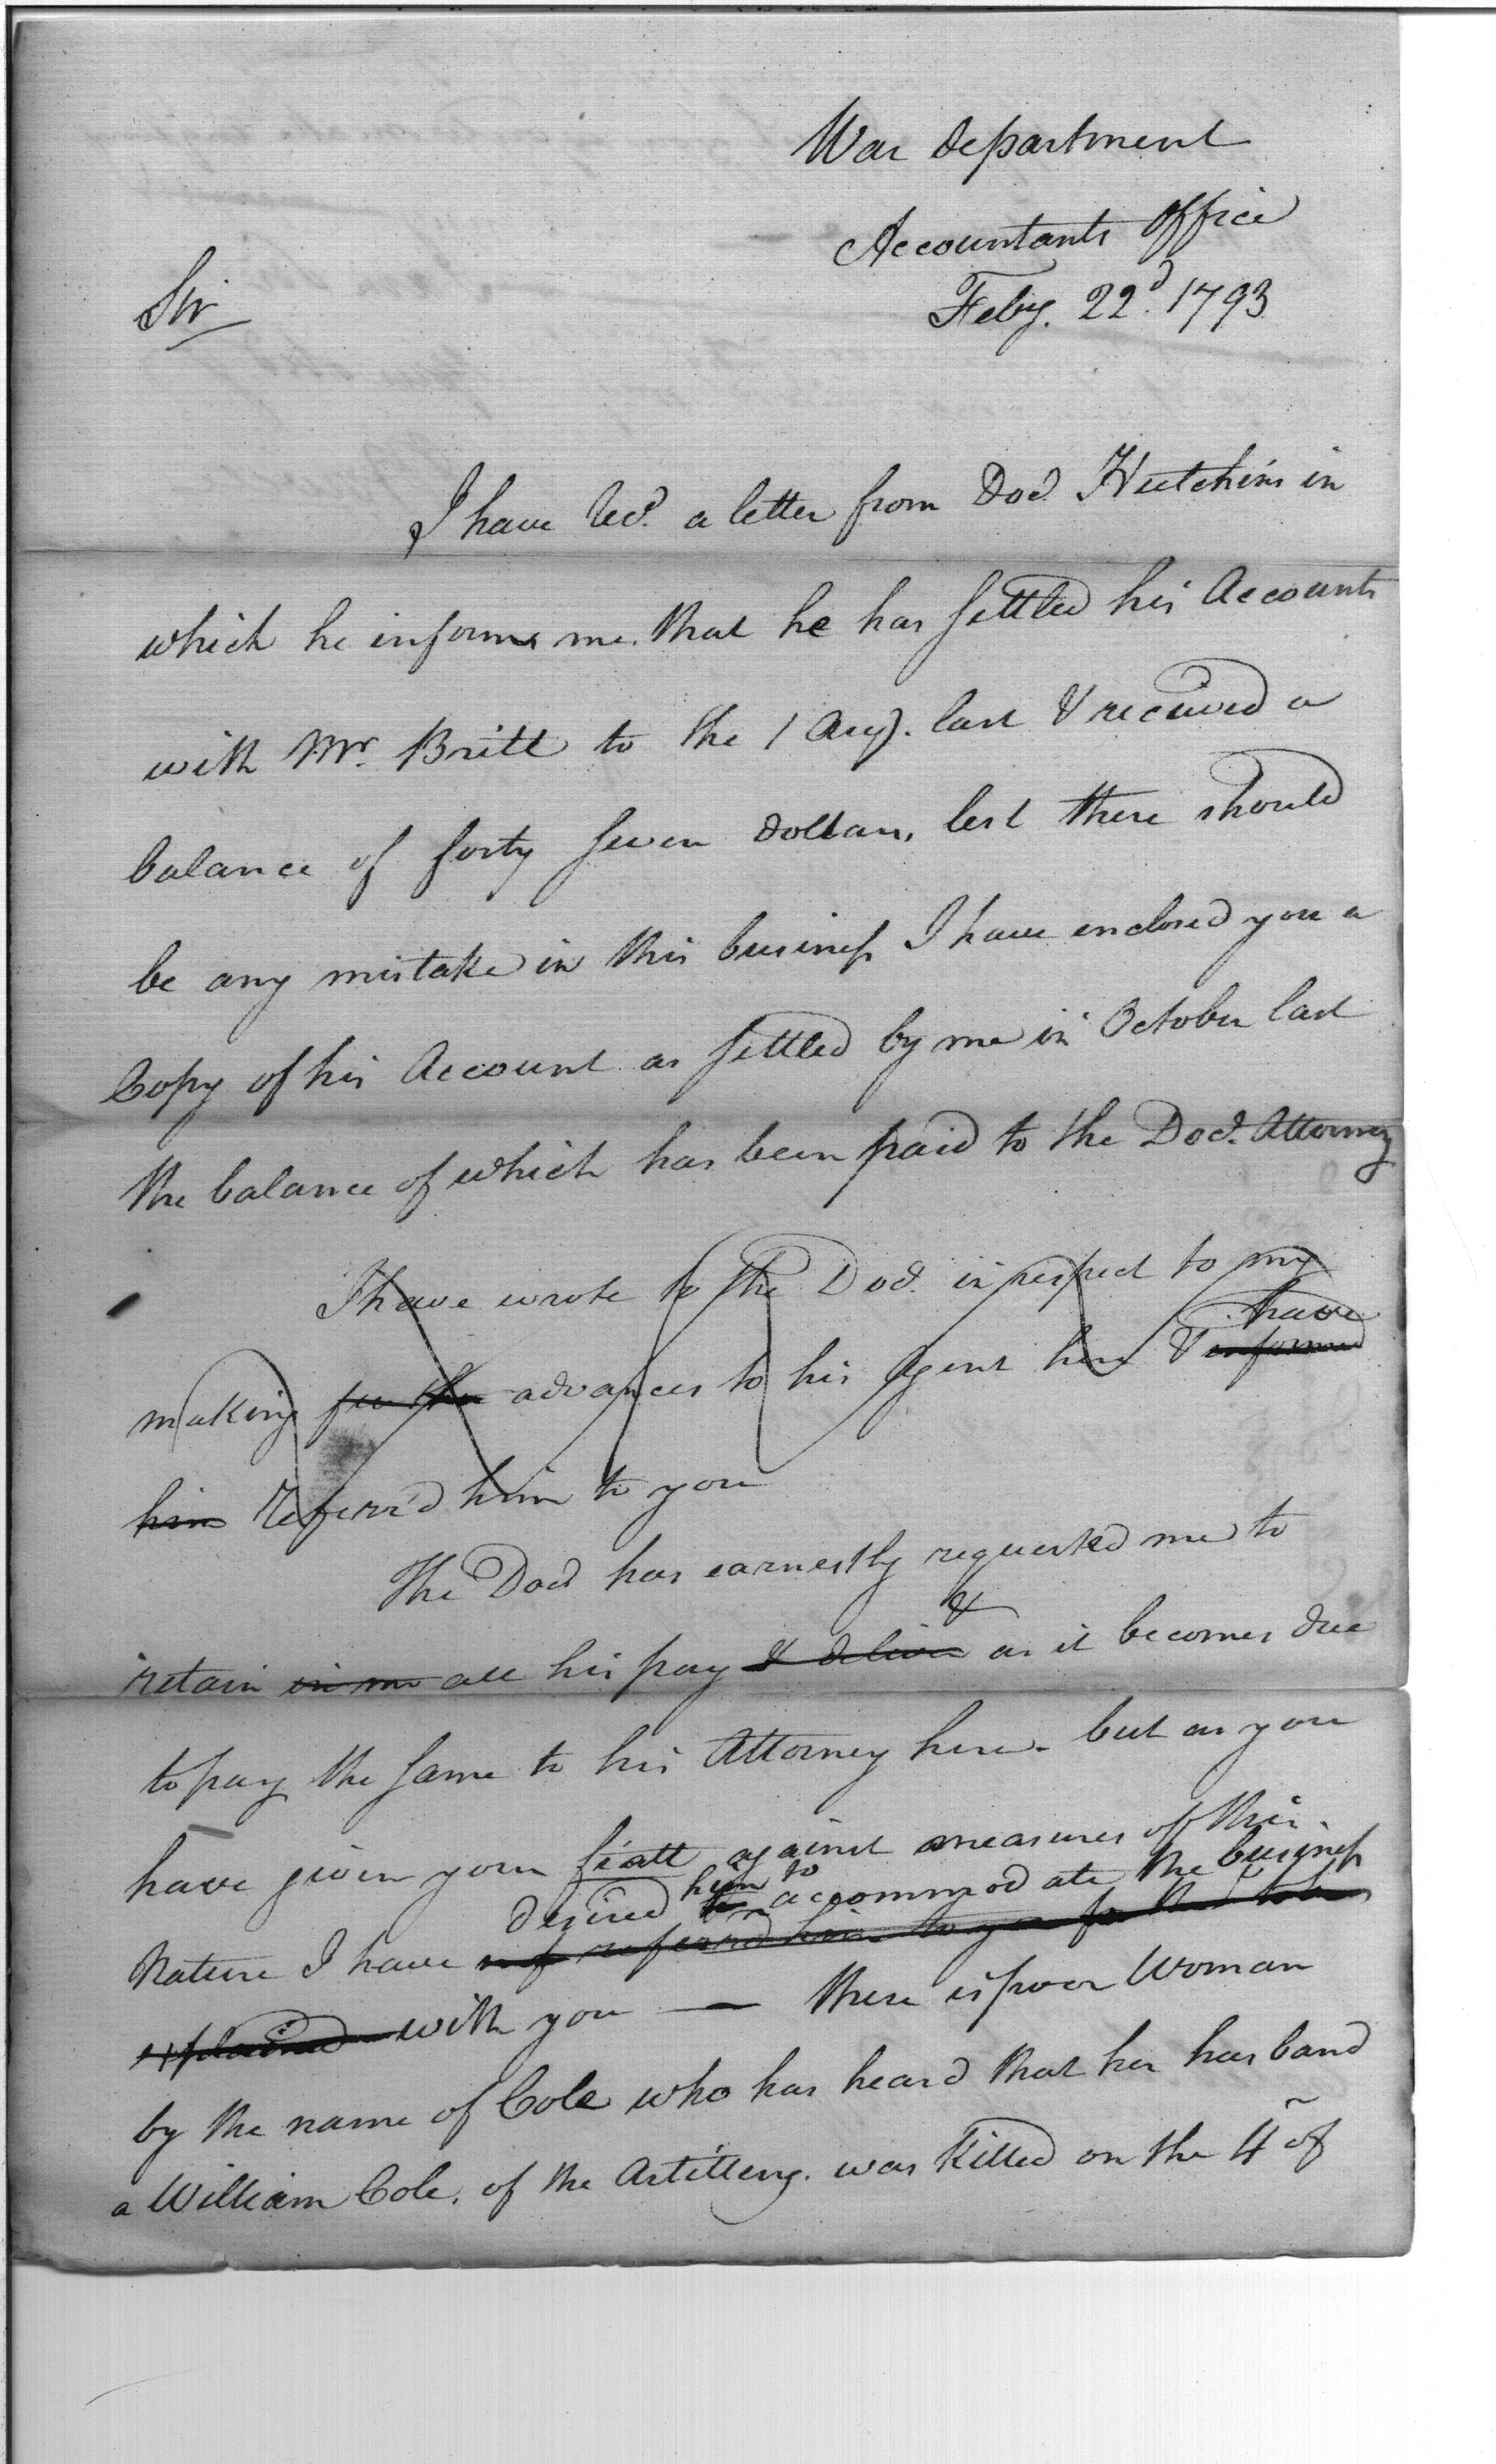 War department
Accountants Office
Feby. 22d. 1793
Sir
I have Recd. a letter from Doct. Hutchins in
which he informs me. that he has settled his Accounts
with Mr. Britt to the 1 Augt. last & received a
balance of forty seven dollars, lest there should
be any mistake in this business I have enclosed you a
Copy of his Account as settled by me in October last
the balance of which has been paid to the Doct. Attorney
I have wrote to the Doct. in respect to my
have
making further advances to his Agent here & informed
him referr'd him to you
The Doct has earnestly requested me to
&
retain in me all his pay & deliver as it becomes due
to pay the same to his Attorney here - but as you
have given your fiatt against measures of this
desired him to accommodate the business
Nature I have referred him to you for
explained with you — there is poor Woman
by the name of Cole who has heard that her husband
a William Cole. of the Artillery. was Killed on the 4 of